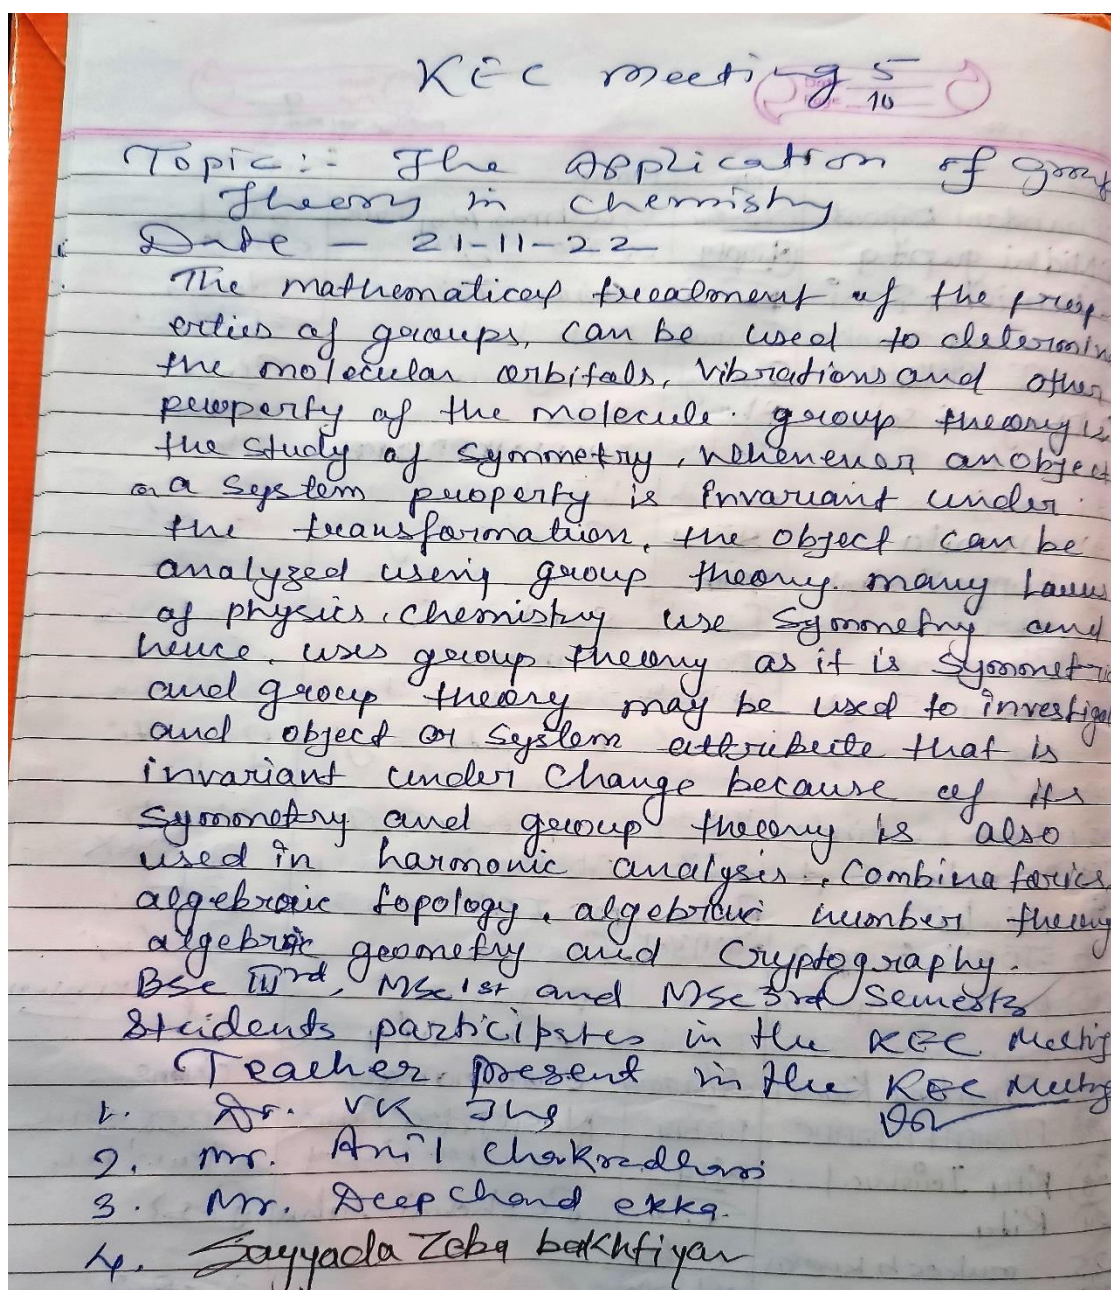 KEC meeting 5
10
Topic:- The Application of group
Theory in chemistry
Date - 21-11-22
The mathematical treatment of the prop-
erties of groups, can be used to determin
the molecular orbitals, vibrations and other
property of the molecule. group theory is
the study of symmetry, whenever an object
or a system property is invariant under
the transformation, the object can be
analyzed using group theory. many laws
of physics, chemistry use symmetry and
hence, uses group theory as it is symmetric
and group theory may be used to investigat
and object or system attribute that is
invariant under change because of its
symmetry and group theory is also
used in harmonic analysis, Combinatorics
algebraic topology, algebraic number theory
algebraic geometry and Cryptography.
BSc IIIrd, MSc 1st and MSc 3rd Semests
Students participates in the KEC Meeting
Teacher present in the KEC Meeting
1. Dr. VK
2. Mr. Anil Chakradhari
3. Mr. Deepchand ekka.
4. Sayyada Zeba bakhtiyar